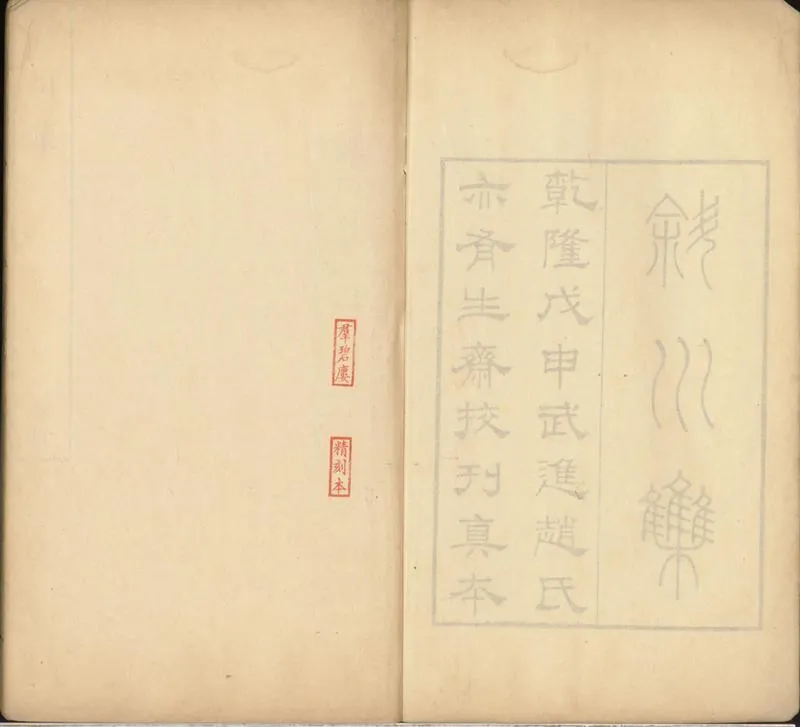 斜川雧
乾隆戊申武進趙氏
亦有生齋挍刊真本
羣碧廔
精刻本